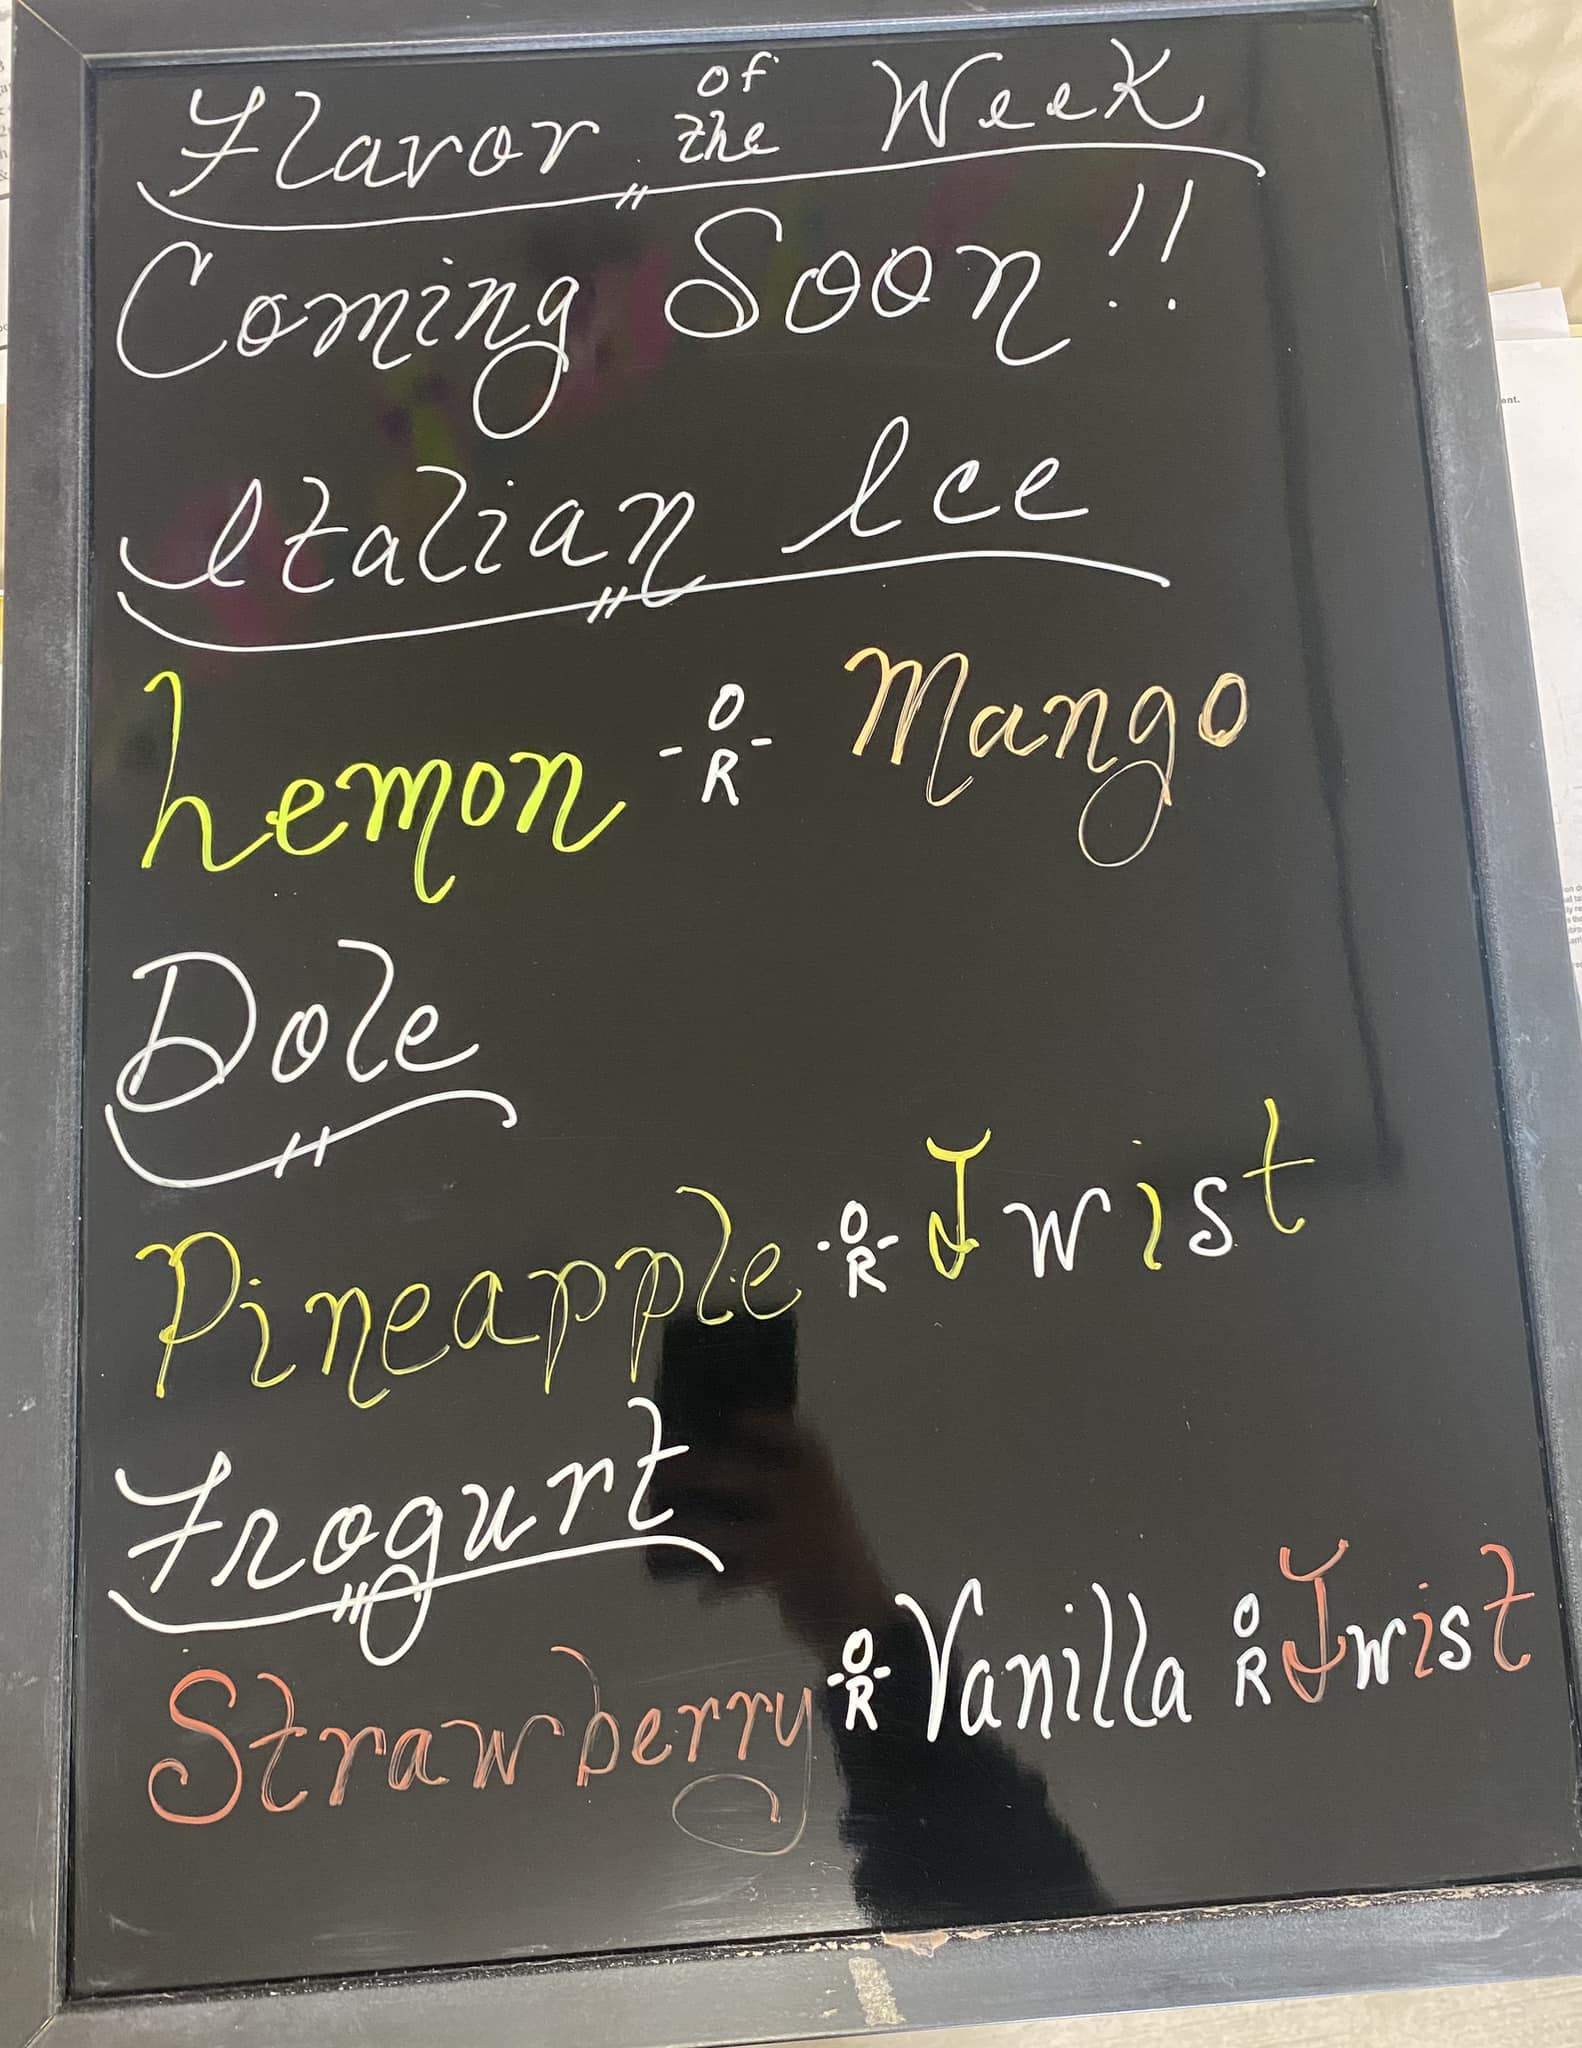 Flavor of the Week
Coming Soon!!
Italian Ice
Lemon -OR- Mango
Dole
Pineapple -OR- Twist
Frogurt
Strawberry -OR- Vanilla OR Twist
ent.